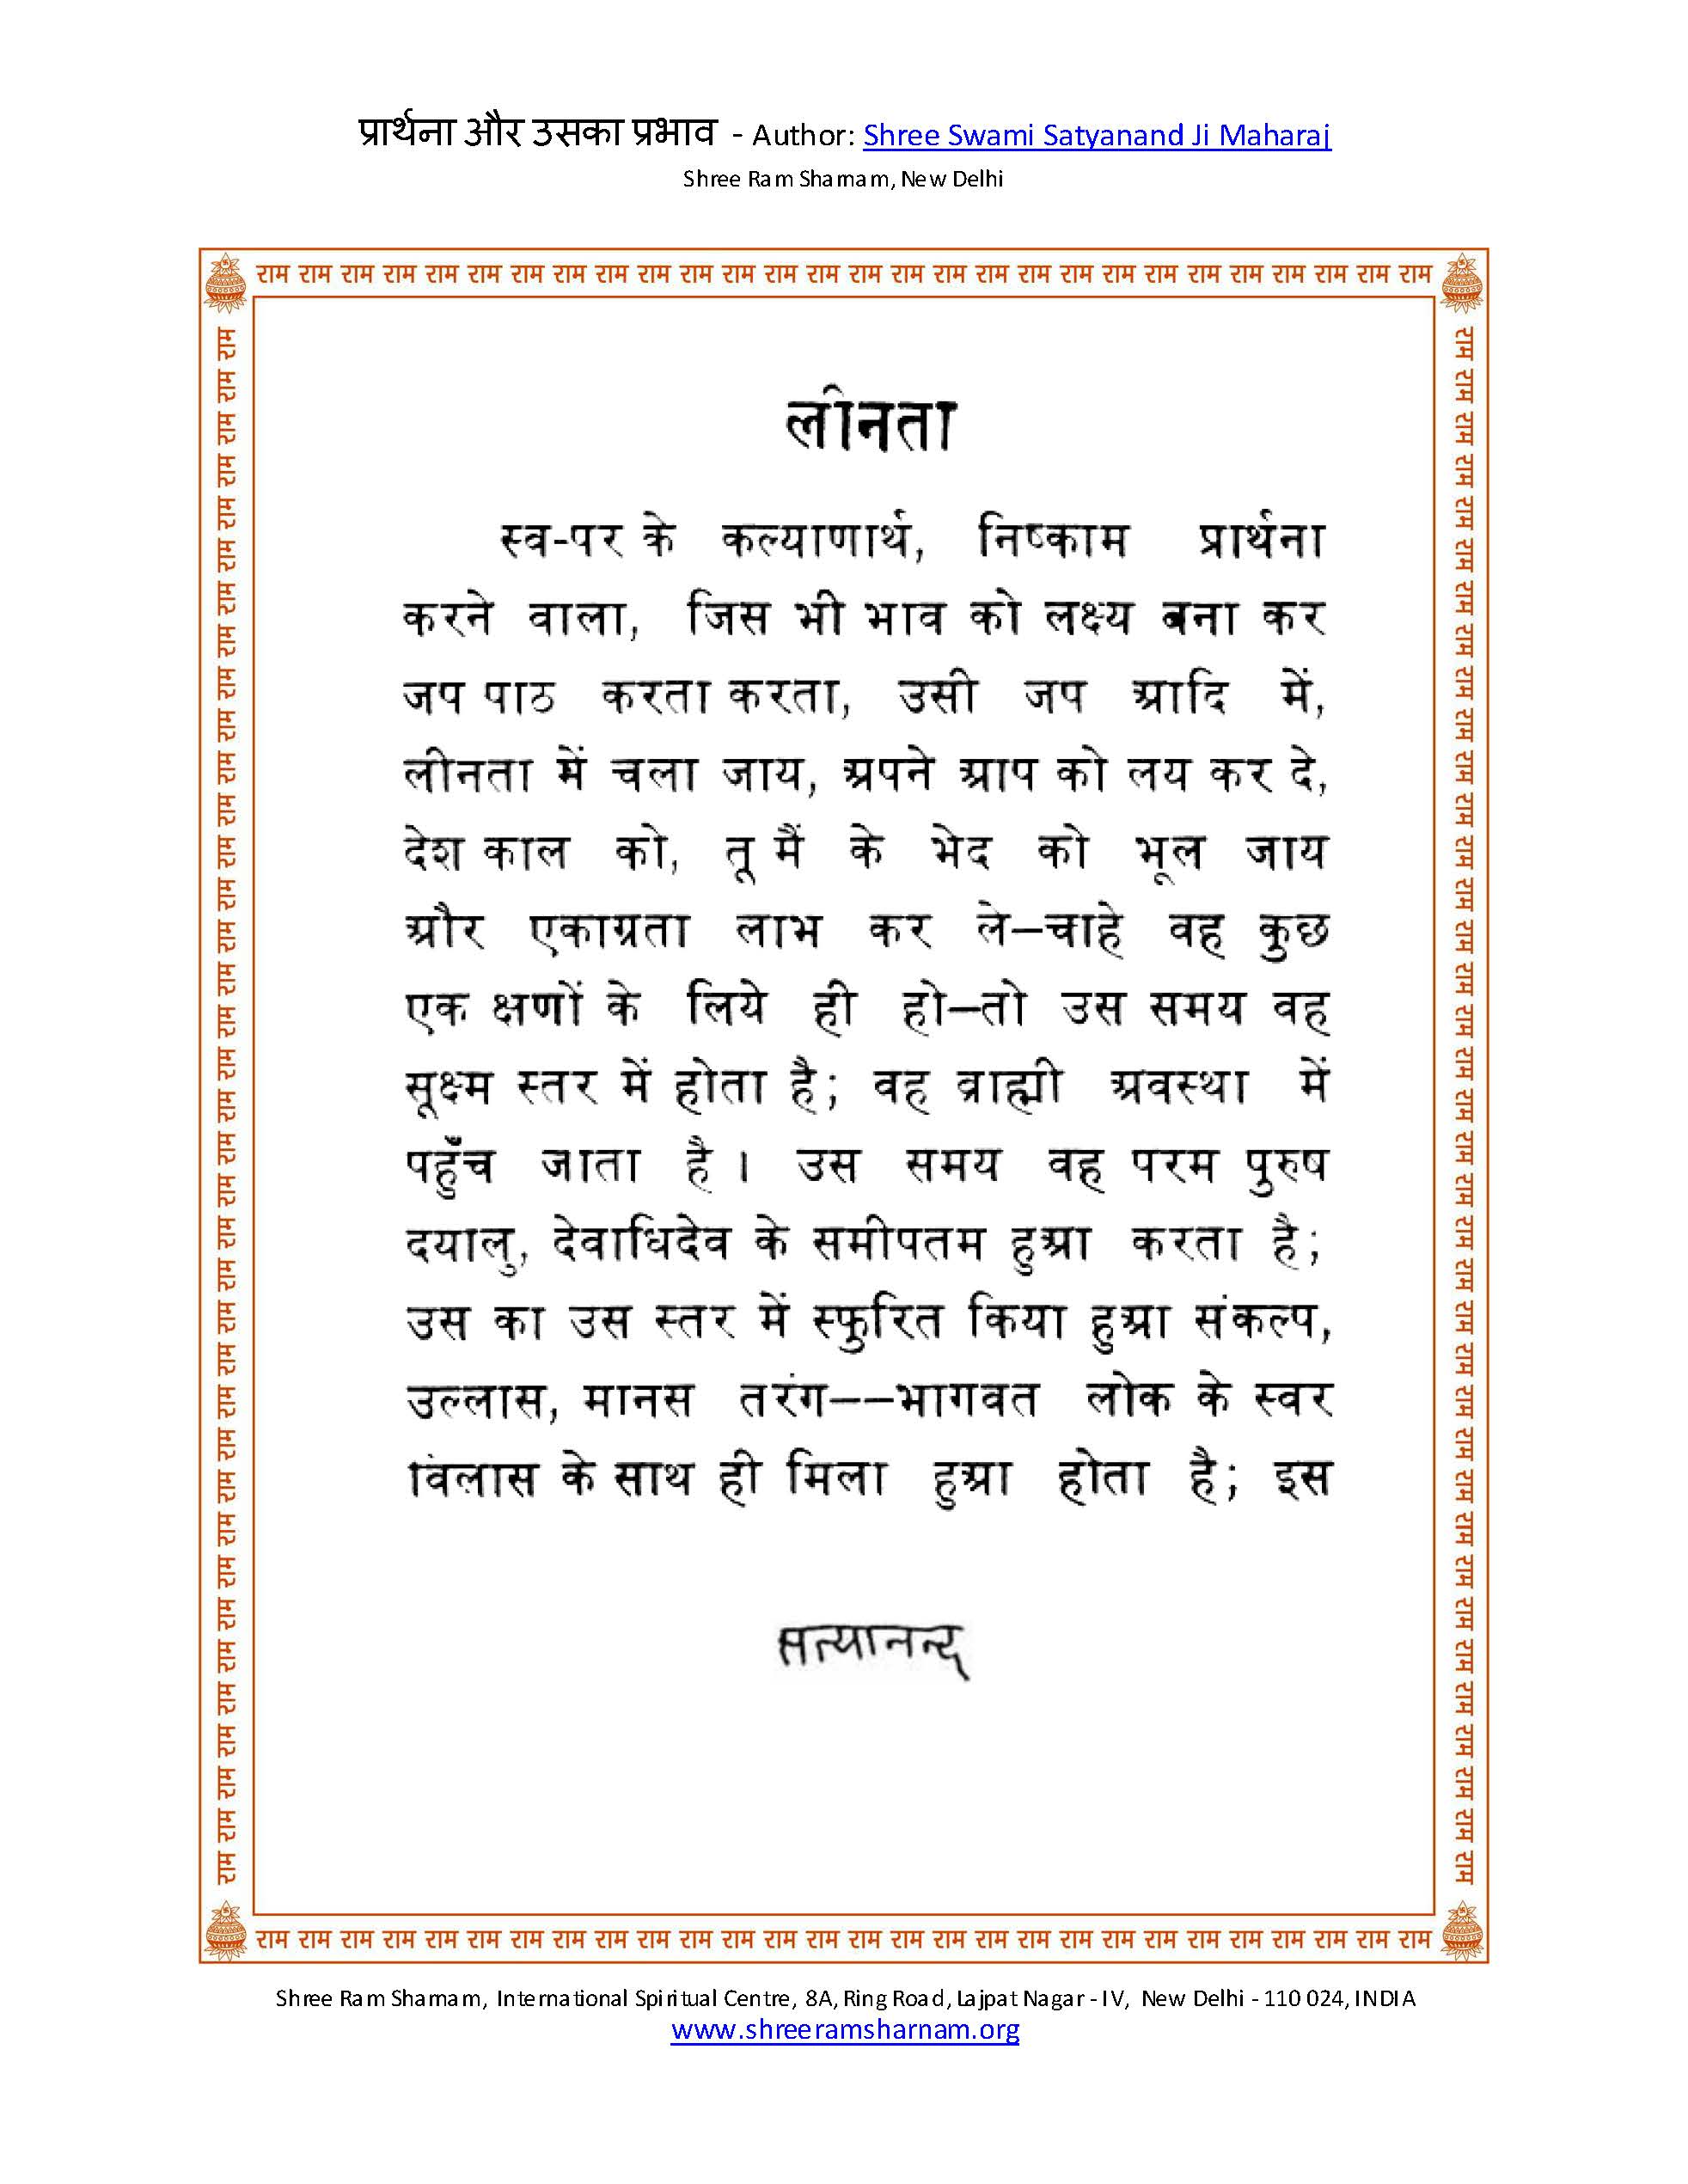 प्रार्थना और उसका प्रभाव - Author: Shree Swami Satyanand Ji Maharaj
Shree Ram Sharnam, New Delhi
राम राम राम राम राम राम राम राम राम राम राम राम राम राम राम राम राम राम राम राम राम राम राम राम राम राम राम राम
लीनता
स्व-पर के कल्याणार्थ, निष्काम प्रार्थना
करने वाला, जिस भी भाव को लक्ष्य बना कर
जप पाठ करता करता, उसी जप आदि में,
लीनता में चला जाय, अपने आप को लय कर दे,
देश काल को, तू मैं के भेद को भूल जाय
और एकाग्रता लाभ कर ले—चाहे वह कुछ
एक क्षणों के लिये ही हो—तो उस समय वह
सूक्ष्म स्तर में होता है; वह ब्राह्मी अवस्था में
पहुँच जाता है । उस समय वह परम पुरुष
दयालु, देवाधिदेव के समीपतम हुआ करता है;
उस का उस स्तर में स्फुरित किया हुआ संकल्प,
उल्लास, मानस तरंग——भागवत लोक के स्वर
विलास के साथ ही मिला हुआ होता है; इस
सत्यानन्द
राम राम राम राम राम राम राम राम राम राम राम राम राम राम राम राम राम राम राम राम राम राम राम राम राम राम राम राम
Shree Ram Sharnam, International Spiritual Centre, 8A, Ring Road, Lajpat Nagar - IV, New Delhi - 110 024, INDIA
www.shreeramsharnam.org